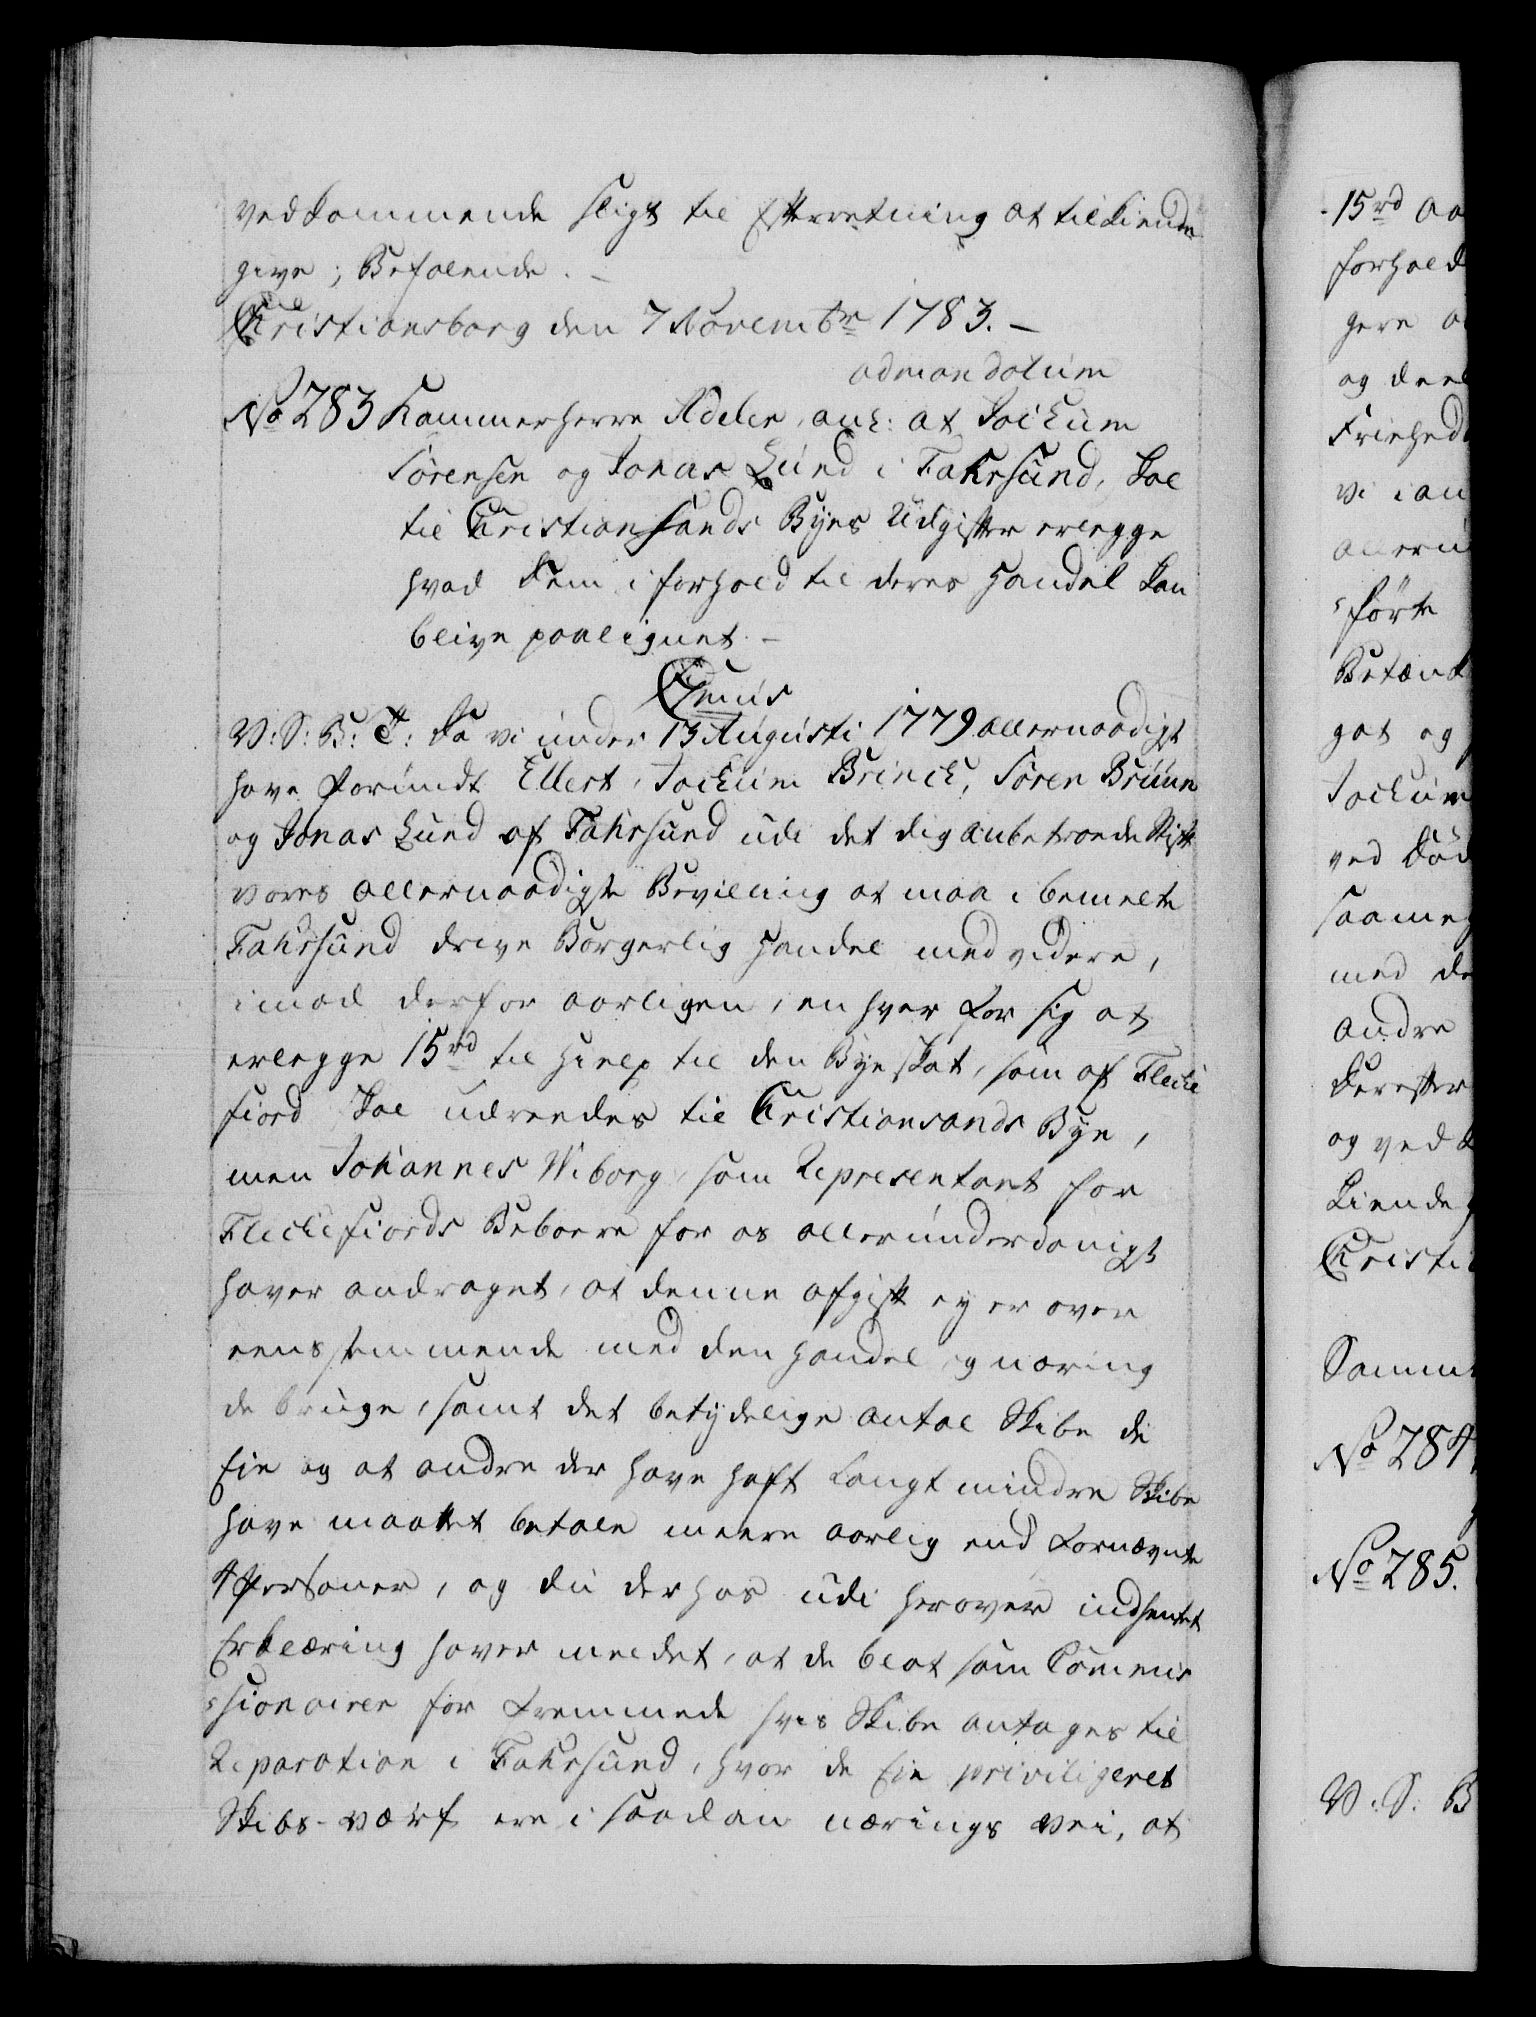 vedkommende sligt til Efterretning at tilkiende
give; Befalende. –
Christiansborg den 7 Novembr 1783. –
ad mandatum
No 283 Kammerherre Adeler, anl: at Jochum
Sørensen og Jonas Lund i Fahrsund, skal
til Christiansands Byes Udgifter erlegge
hvad dem i forhold til deres Handel kan
blive paalignet. –
V: S: B: T: Da vi under 13 Augusti 1779 allernaadigst
have forundt Ellert, Jochum Brinch, Søren Bruun
og Jonas Lund af Fahrsund udi det dig anbetroede Stift
vores allernaadigste Bevilling at maa i bemelte
Fahrsund drive Borgerlig Handel med videre,
imod derfor aarligen, en hver for sig at
erlegge 15 rd til Hielp til den Bye skat, som af Flecke
fiord skal udredes til Christiansands Bye,
men Johannes Wiborg, som Representant for
Fleckefiords Beboere for os allerunderdanigst
haver andraget, at denne afgift ey er over
eensstemmende med den Handel og næring
de bruge, samt det betydelige antal Skibe de
Eie og at andre der have haft langt mindre Skibe
have maattet betale meere aarlig end fornævnte
4 Personer, og du derhos udi herover indhentet
Erklæring haver meldet, at de blot som Commis
sionairer for fremmede hvis Skibe antages til
Reparation i Fahrsund, hvor de Eie priviligeret
Skibs-værf ere i saadan nærings vei, at
15 rd aa
forhold
gere
og deel
Friehed
vi
allern
førte
Betænk
got og
Jochum
ved
saameg
med de
andre
derefter
og ved
kiende
Christi
Samm
No 284
No 285.
V: S: B